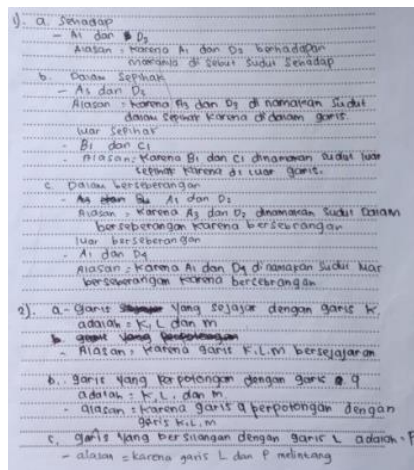 1). a. Sehadap
- A1 dan D3
Alasan : karena A1 dan D3 berhadapan
makanya di sebut sudut Sehadap
b. Dalam Sepihak
- A3 dan D3
Alasan : karena A3 dan D3 di namakan Sudut
dalam sepihak karena di dalam garis.
luar Sepihak
- B1 dan C1
- Alasan : karena B1 dan C1 dinamakan sudut luar
sepihak karena di luar garis.
c. Dalam berseberangan
- A1 dan D2
Alasan : karena A3 dan D2 dinamakan Sudut Dalam
berseberangan karena berseberangan
luar berseberangan
- A1 dan D4
Alasan : karena A1 dan D4 dinamakan sudut luar
berseberangan karena berseberangan
2). a - Garis yang sejajar dengan garis K,
adalah = K, L dan m
- Alasan = karena garis K.L.m bersejajaran
b. . garis yang perpotongan dengan garis q
adalah = K, L, dan m.
- alasan = karena garis q perpotongan dengan
garis K.L.m
c, garis yang bersilangan dengan garis L adalah = P
- alasan = karena garis L dan P melintang